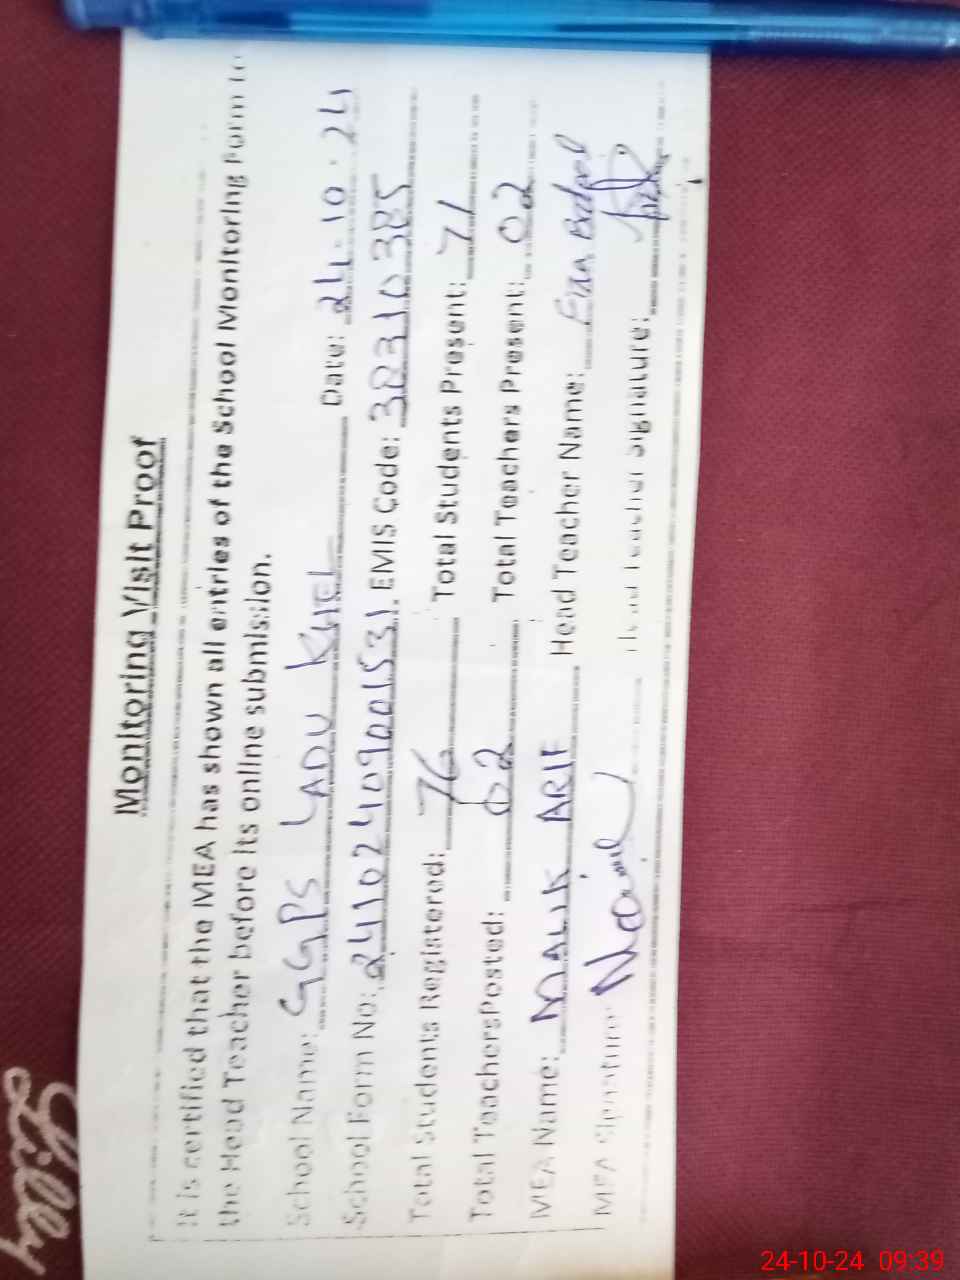 Monitoring Visit Proof
It is certified that the MEA has shown all entries of the School Monitoring Form to
the Head Teacher before its online submission.
School Name: GGPS LADU KHEL Date: 24.10.24
School Form No: 24102409001531 EMIS Code: 38310385
Total Students Registered: 76 Total Students Present: 71
Total Teachers Posted: 02 Total Teachers Present: 02
MEA Name: MALIK ARIF Head Teacher Name:
MEA Signature: Head Teacher Signature:
24-10-24 09:39